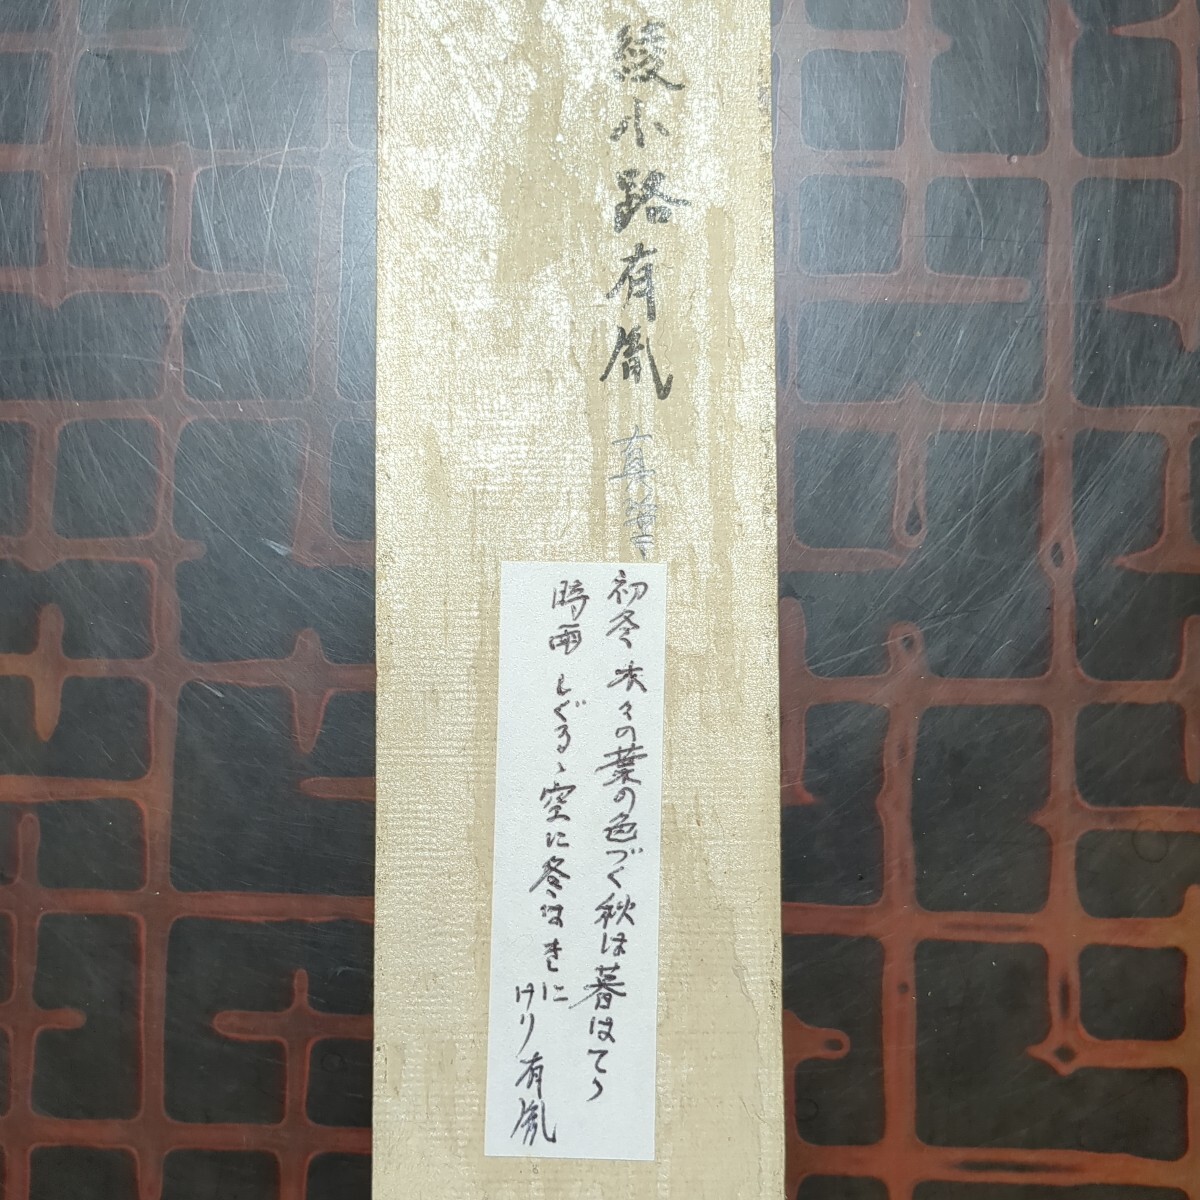 綾小路有胤
真筆
初冬 木々の葉の色づく秋は暮はてゝ
時雨 しぐるゝ空に冬はきに
けり 有胤